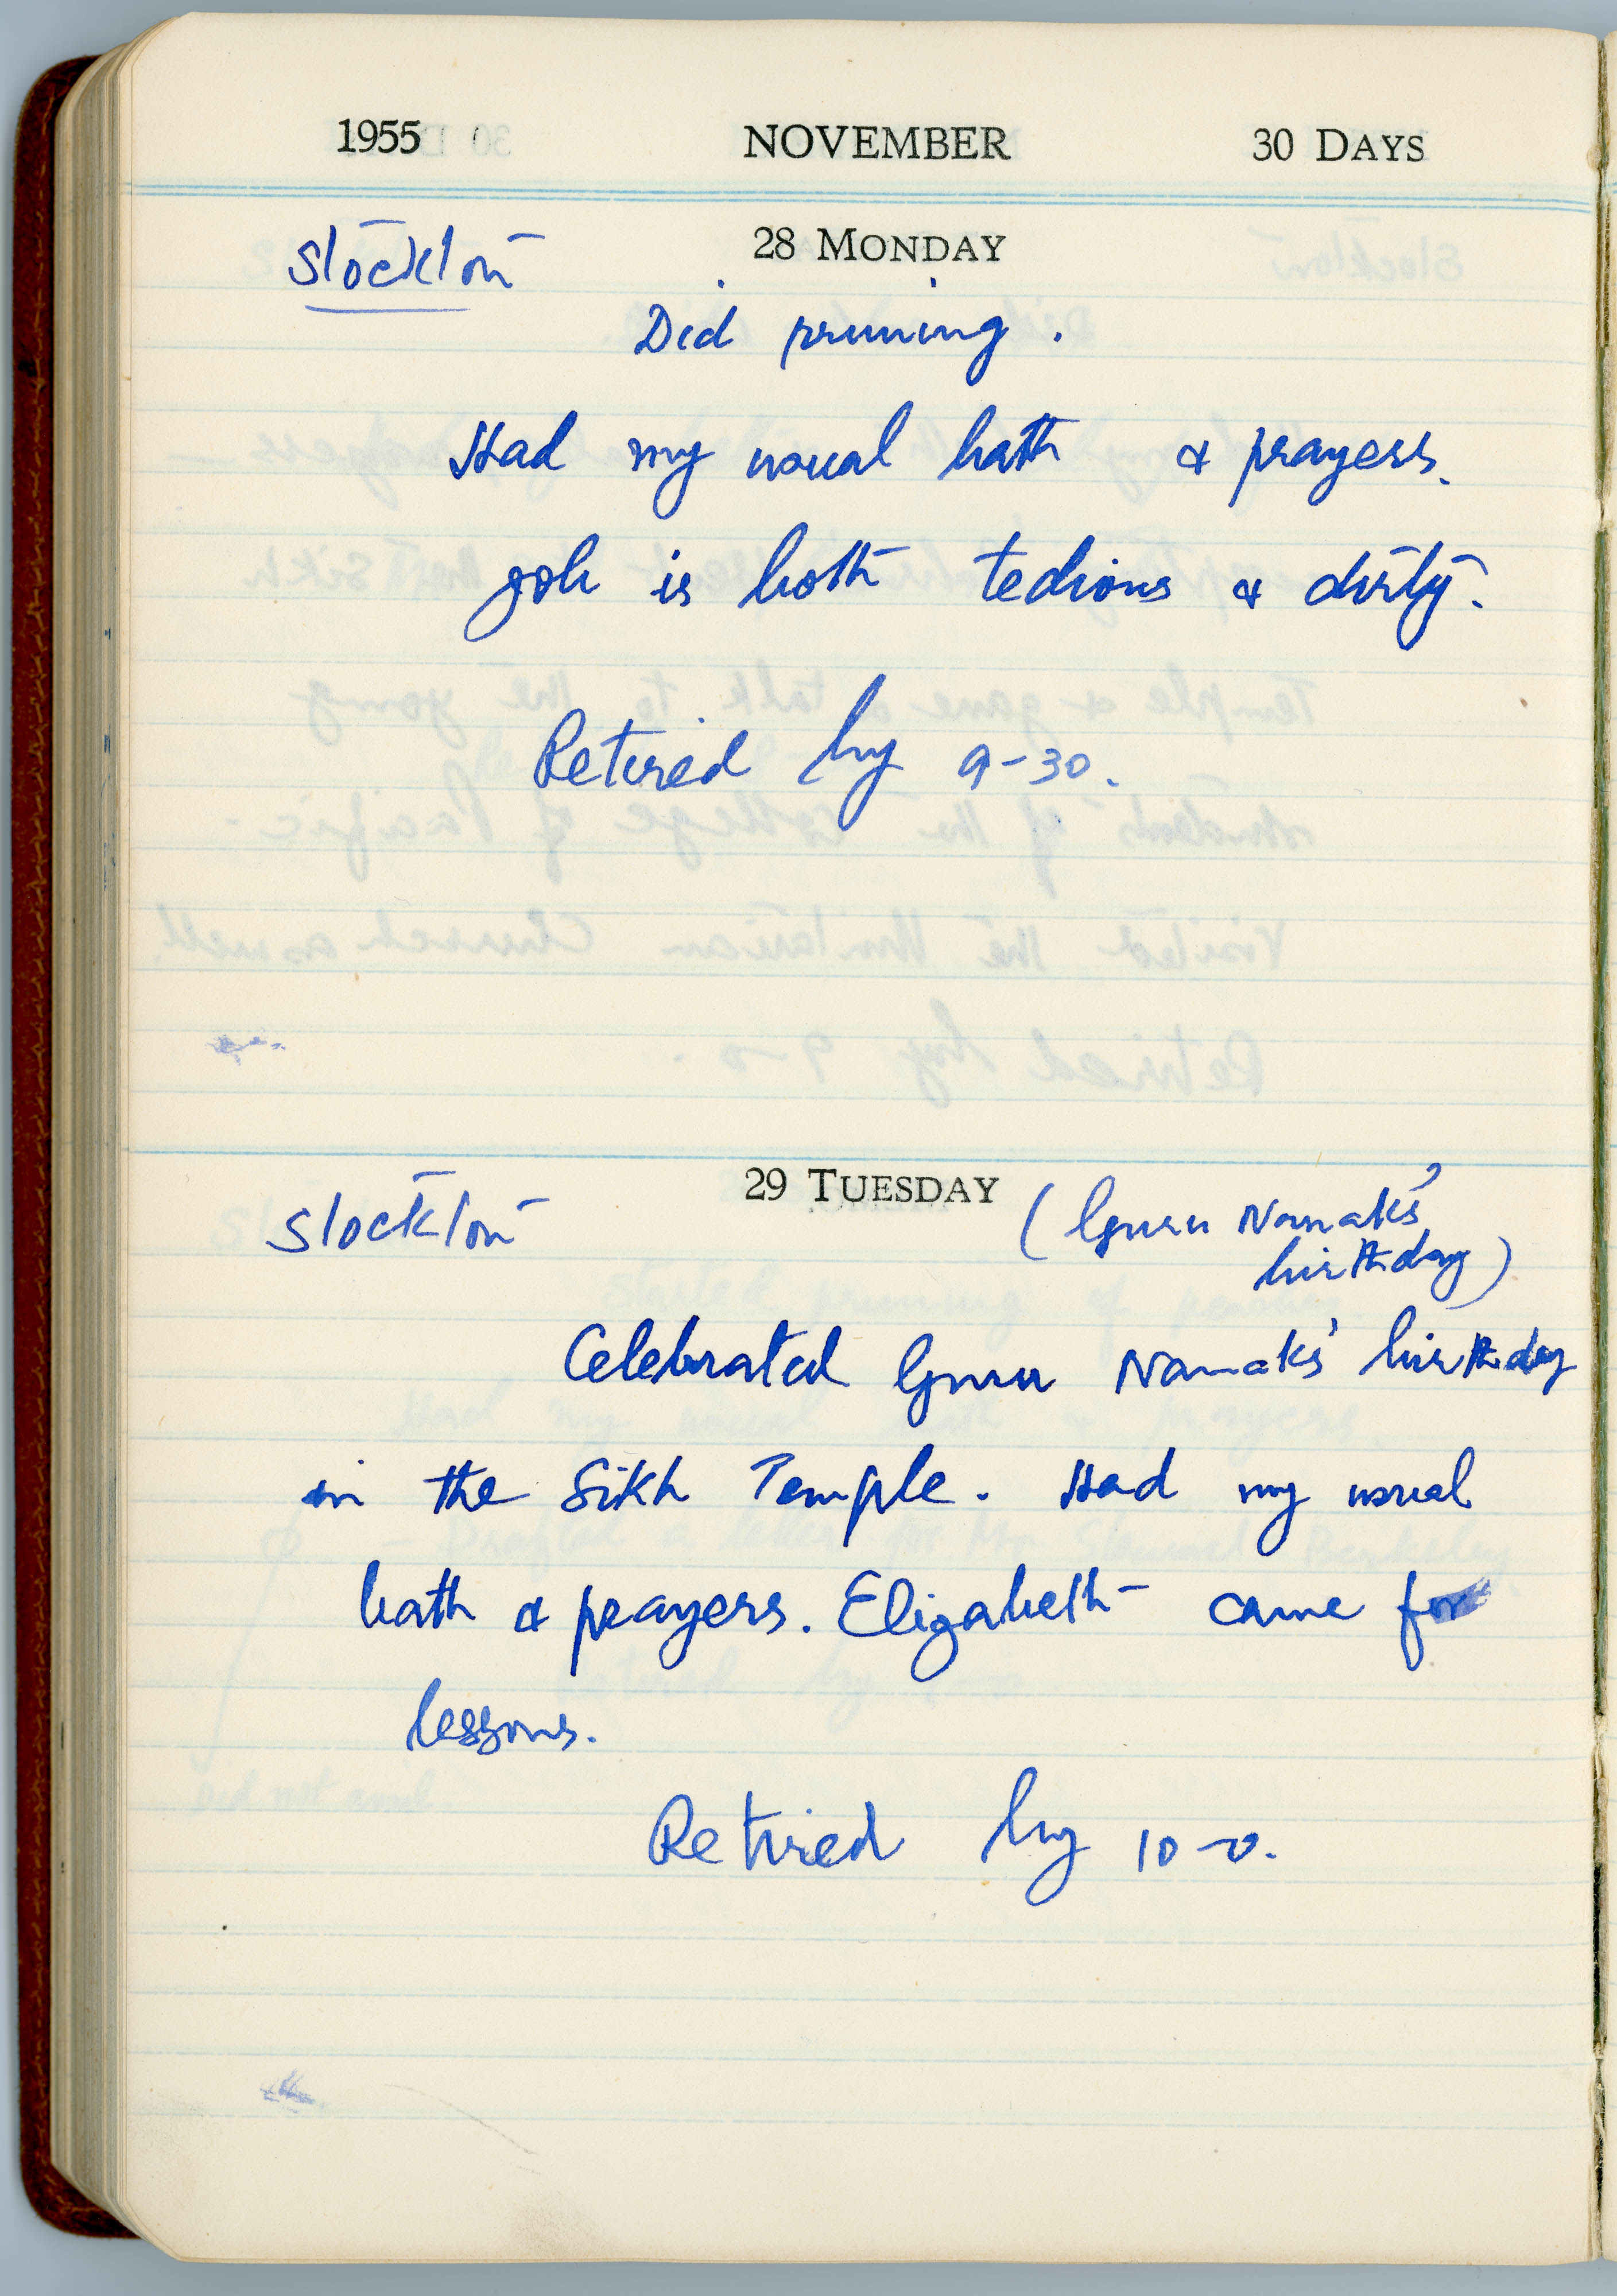 1955 NOVEMBER 30 DAYS
Stockton 28 MONDAY
Did pruning.
Had my usual bath & prayers.
Job is both tedious & dirty.
Retired by 9-30.
Stockton 29 TUESDAY (Guru Nanak's
birthday)
Celebrated Guru Nanak's birthday
in the Sikh Temple. Had my usual
bath & prayers. Elizabeth came for
lessons.
Retired by 10-0.